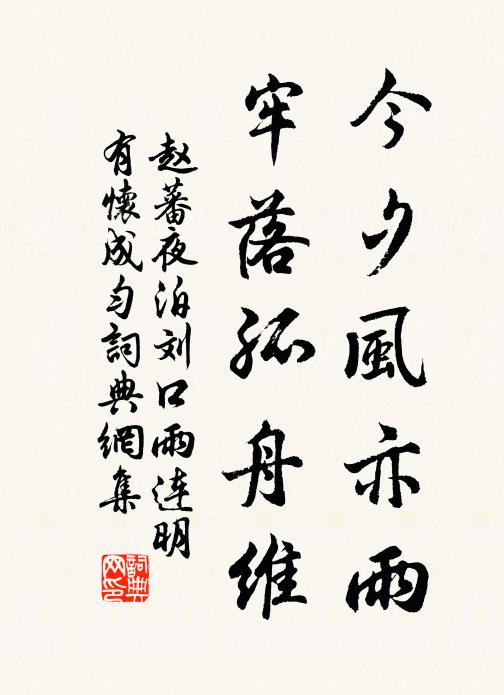 今夕風亦雨
牢落孤舟維
赵蕃夜泊刘口雨连明
有懷成句詞典網集
詞典
网印